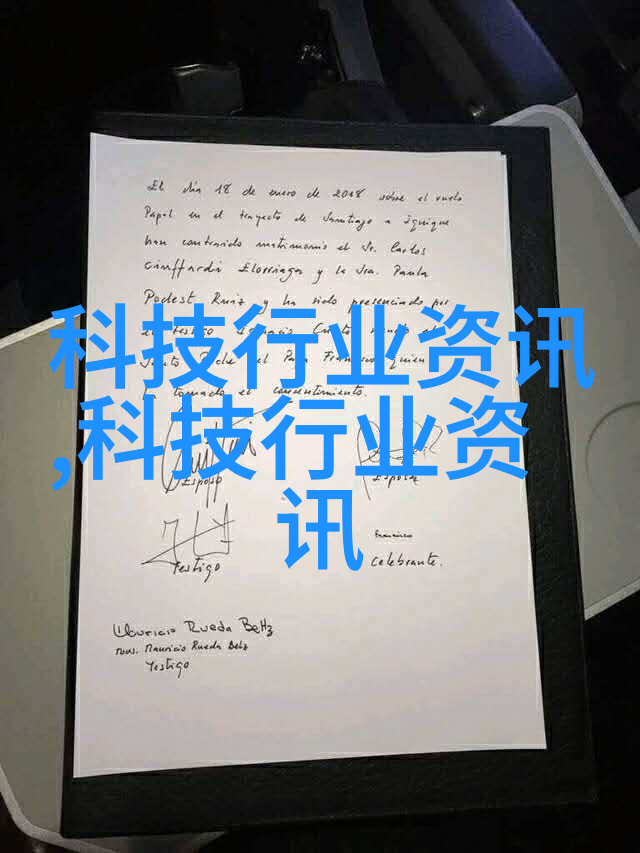 El día 18 de enero de 2018 sobre el vuelo
Papal en el trayecto de Santiago a Iquique
han contraído matrimonio el Sr. Carlos
Ciuffardi Elorriaga y la Sra. Paula
Podest Ruiz y ha sido presenciado por
el testigo Ignacio
Santo Padre el Papa Francisco quien
ha tomado el consentimiento.
科技行业资讯
,科技行业资
讯
Esposo
Esposa
Testigo
Francisco
Celebrante.
Mauricio Rueda Beltz
Mons. Mauricio Rueda Beltz
Testigo